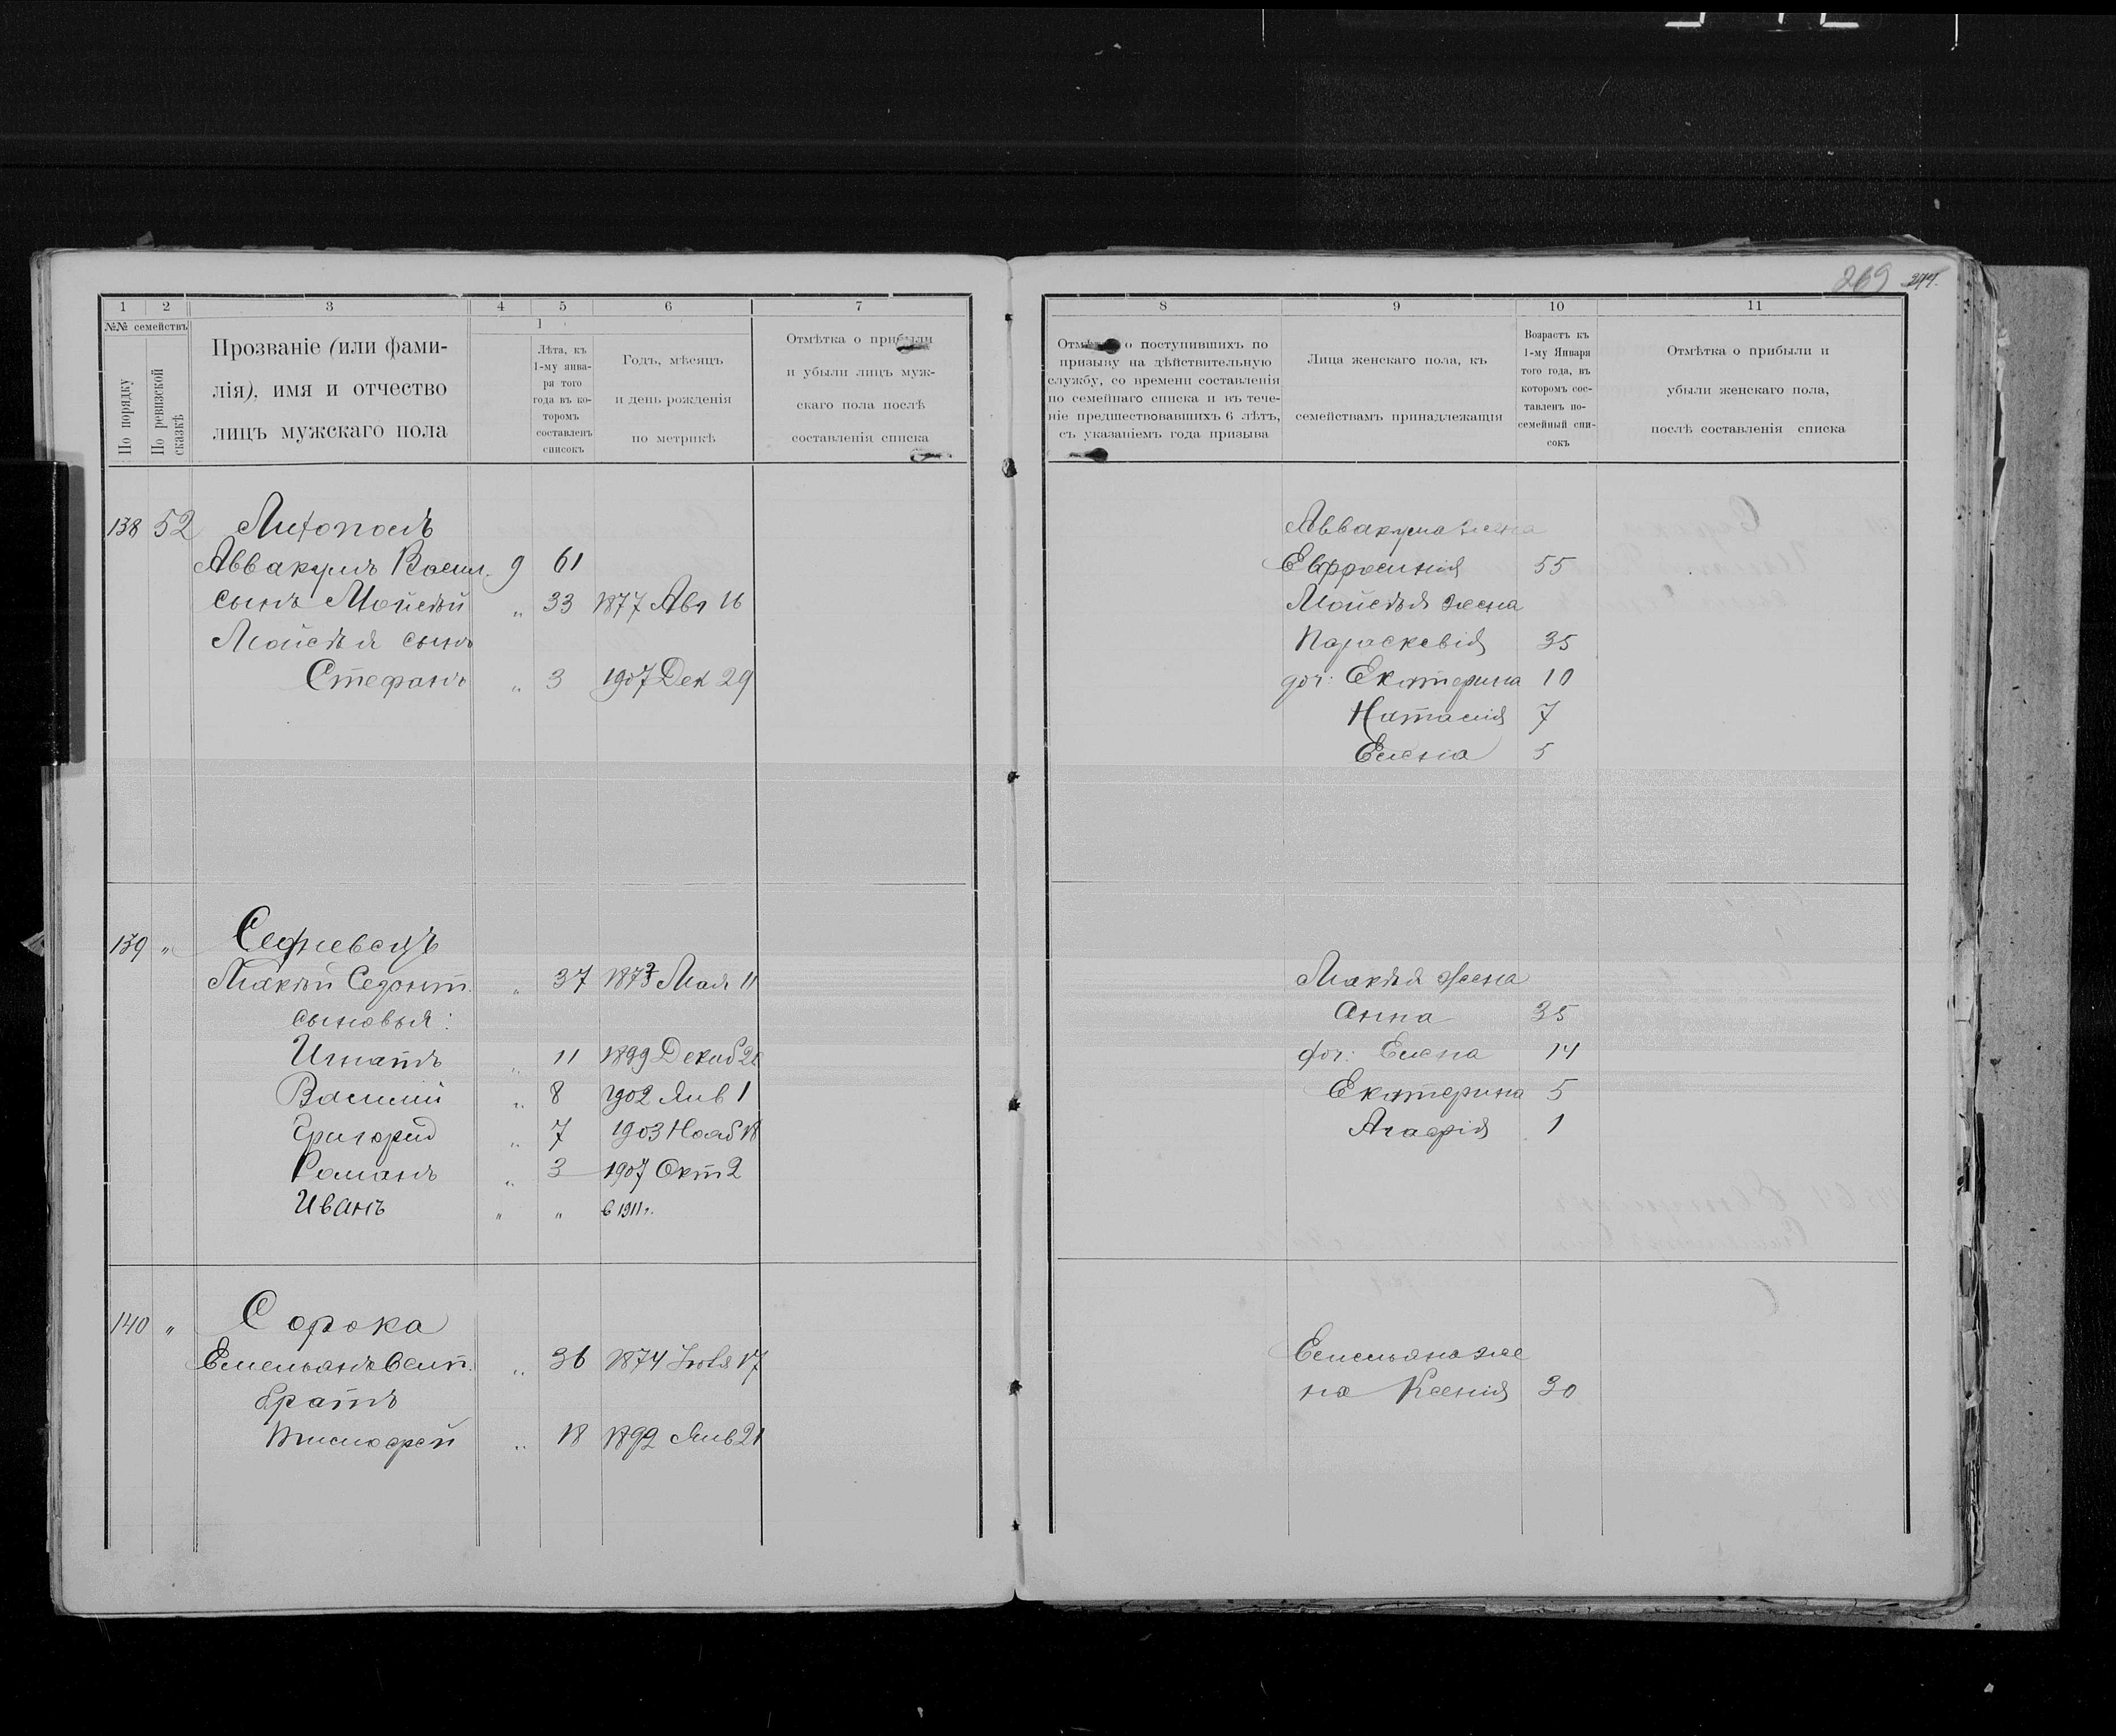 269 277.
1 2 3 4 5 6 7
№№ семействъ
По порядку
По ревизской сказкѣ
Прозваніе (или фами-
лія), имя и отчество
лицъ мужскаго пола
1
Лѣта, къ
1-му янва-
ря того
года въ ко-
торомъ
составленъ
списокъ
Годъ, мѣсяцъ
и день рожденія
по метрикѣ
Отмѣтка о прибыли
и убыли лицъ муж-
скаго пола послѣ
составленія списка
138 52
Аввакумъ Васил. 9 61
сынъ Мойсѣй „ 33 1877 Авг 16
Мойсѣя сынъ
Стефанъ „ 3 1907 Дек 29
139 „
Мокѣй „ 37 Мая 11
сыновья:
Игнатъ „ 11 1899 Декаб
Василій „ 8 1902 Янв 1
Григорій „ 7 1903 Нояб 18
Романъ „ 3 1907 Окт 2
Иванъ „ „ в 1911 г.
140 „ Сорока
Емельянъ „ 36 1874 Іюля 17
братъ
Тимофей „ 18 1892 Янв 21
8 9 10 11
о поступившихъ по
призыву на дѣйствительную
службу, со времени составленія
по семейнаго списка и въ тече-
ніе предшествовавшихъ 6 лѣтъ,
съ указаніемъ года призыва
Лица женскаго пола, къ
семействамъ принадлежащія
Возрастъ къ
1-му Января
того года, въ
которомъ сос-
тавленъ по-
семейный спи-
сокъ
Отмѣтка о прибыли и
убыли женскаго пола,
послѣ составленія списка
Аввакума жена
Евфросинія 55
Мойсѣя жена
Параскевія 35
доч: Екатерина 10
Наталія 7
Елена 5
Мокѣя жена
Анна 35
доч: Елена 14
Екатерина 5
Агафія 1
Емельяна же
на Ксенія 30